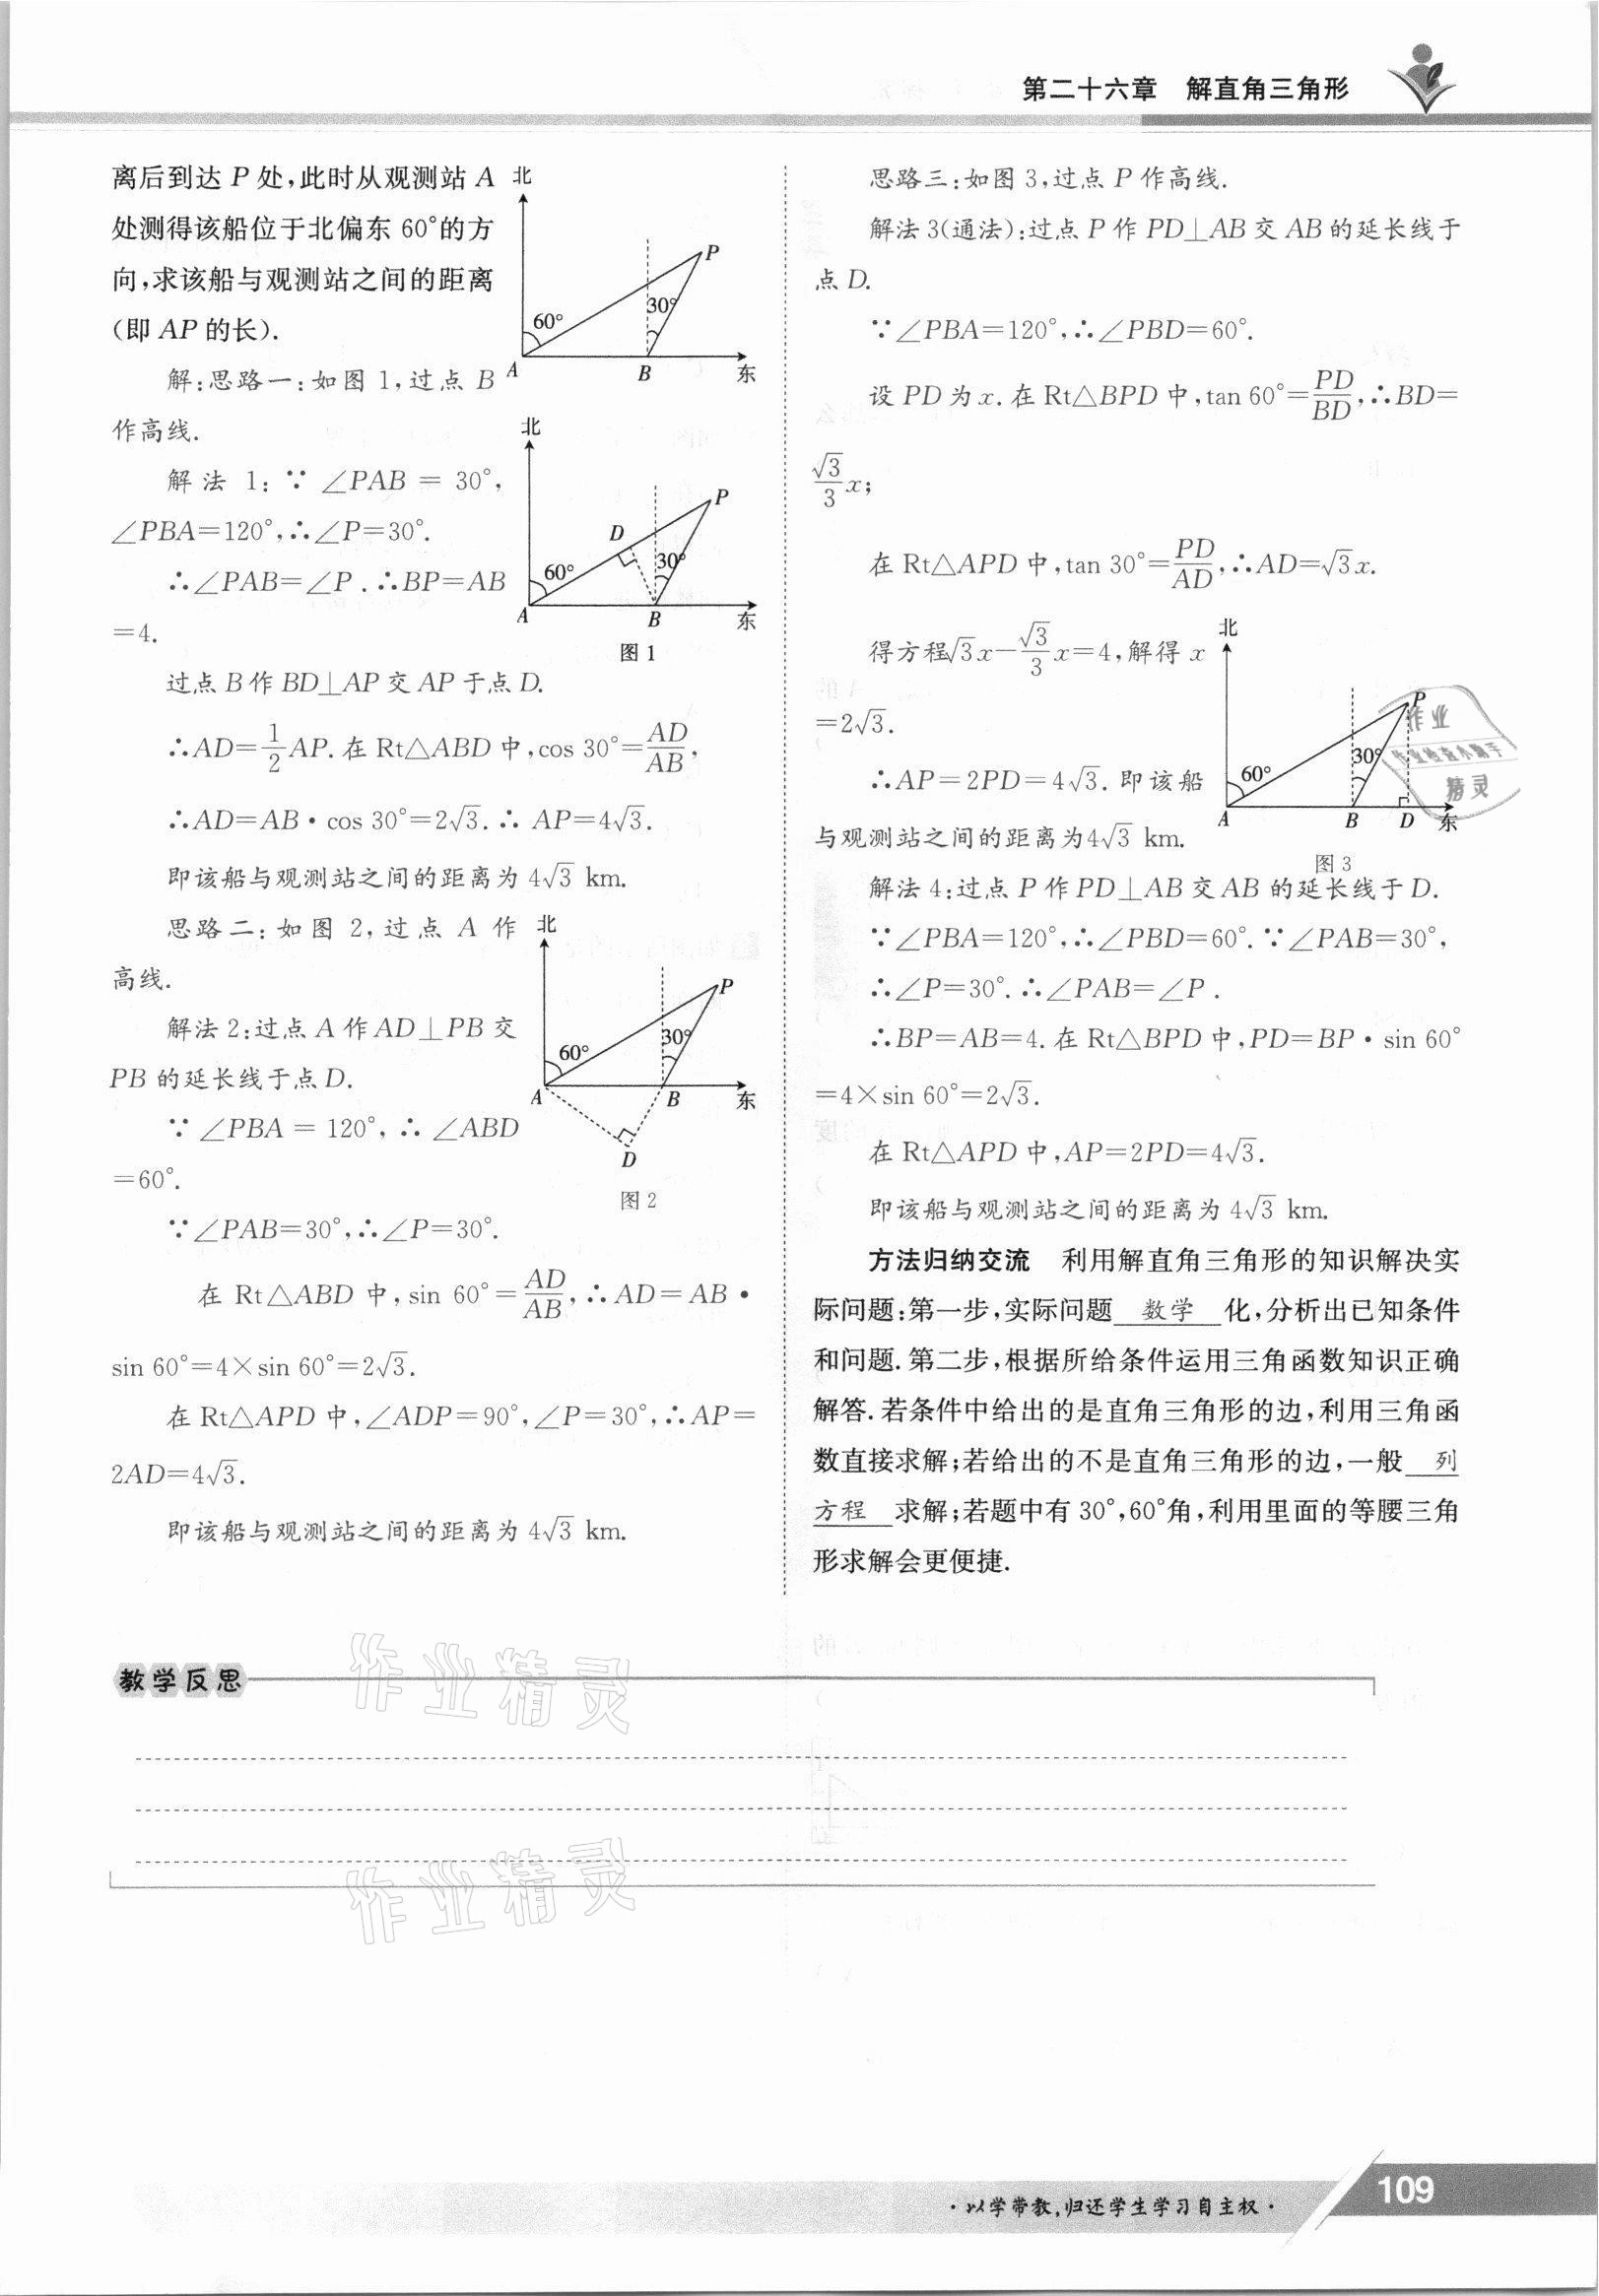 第二十六章 解直角三角形
离后到达 P 处,此时从观测站 A
处测得该船位于北偏东 60°的方
向,求该船与观测站之间的距离
(即 AP 的长).
北
P
30°
60°
A
B
东
解:思路一:如图 1,过点 B
作高线.
解法 1:∵∠PAB=30°,
∠PBA=120°,∴∠P=30°.
∴∠PAB=∠P.∴BP=AB
=4.
北
P
D
30°
60°
A
B
东
图 1
过点 B 作 BD⊥AP 交 AP 于点 D.
∴AD=1/2 AP. 在 Rt△ABD 中,cos 30°=AD/AB,
∴AD=AB·cos 30°=2√3.∴ AP=4√3.
即该船与观测站之间的距离为 4√3 km.
思路二:如图 2,过点 A 作
高线.
解法 2:过点 A 作 AD⊥PB 交
PB 的延长线于点 D.
∵∠PBA=120°,∴∠ABD
=60°.
北
P
30°
60°
A
B
东
D
图 2
∵∠PAB=30°,∴∠P=30°.
在 Rt△ABD 中,sin 60°=AD/AB,∴AD=AB·
sin 60°=4×sin 60°=2√3.
在 Rt△APD 中,∠ADP=90°,∠P=30°,∴AP=
2AD=4√3.
即该船与观测站之间的距离为 4√3 km.
思路三:如图 3,过点 P 作高线.
解法 3(通法):过点 P 作 PD⊥AB 交 AB 的延长线于
点 D.
∵∠PBA=120°,∴∠PBD=60°.
设 PD 为 x. 在 Rt△BPD 中,tan 60°=PD/BD,∴BD=
√3/3 x;
在 Rt△APD 中,tan 30°=PD/AD,∴AD=√3x.
得方程√3x-√3/3 x=4,解得 x
=2√3.
∴AP=2PD=4√3. 即该船
与观测站之间的距离为4√3 km.
北
P
30°
60°
A
B
D
东
图 3
作业
作业检查小助手
精灵
解法 4:过点 P 作 PD⊥AB 交 AB 的延长线于 D.
∵∠PBA=120°,∴∠PBD=60°.∵∠PAB=30°,
∴∠P=30°.∴∠PAB=∠P.
∴BP=AB=4. 在 Rt△BPD 中,PD=BP·sin 60°
=4×sin 60°=2√3.
在 Rt△APD 中,AP=2PD=4√3.
即该船与观测站之间的距离为 4√3 km.
方法归纳交流 利用解直角三角形的知识解决实
际问题:第一步,实际问题 数学 化,分析出已知条件
和问题. 第二步,根据所给条件运用三角函数知识正确
解答. 若条件中给出的是直角三角形的边,利用三角函
数直接求解;若给出的不是直角三角形的边,一般 列
方程 求解;若题中有 30°,60°角,利用里面的等腰三角
形求解会更便捷.
教学反思
作业精灵
作业精灵
·以学带教,归还学生学习自主权·
109